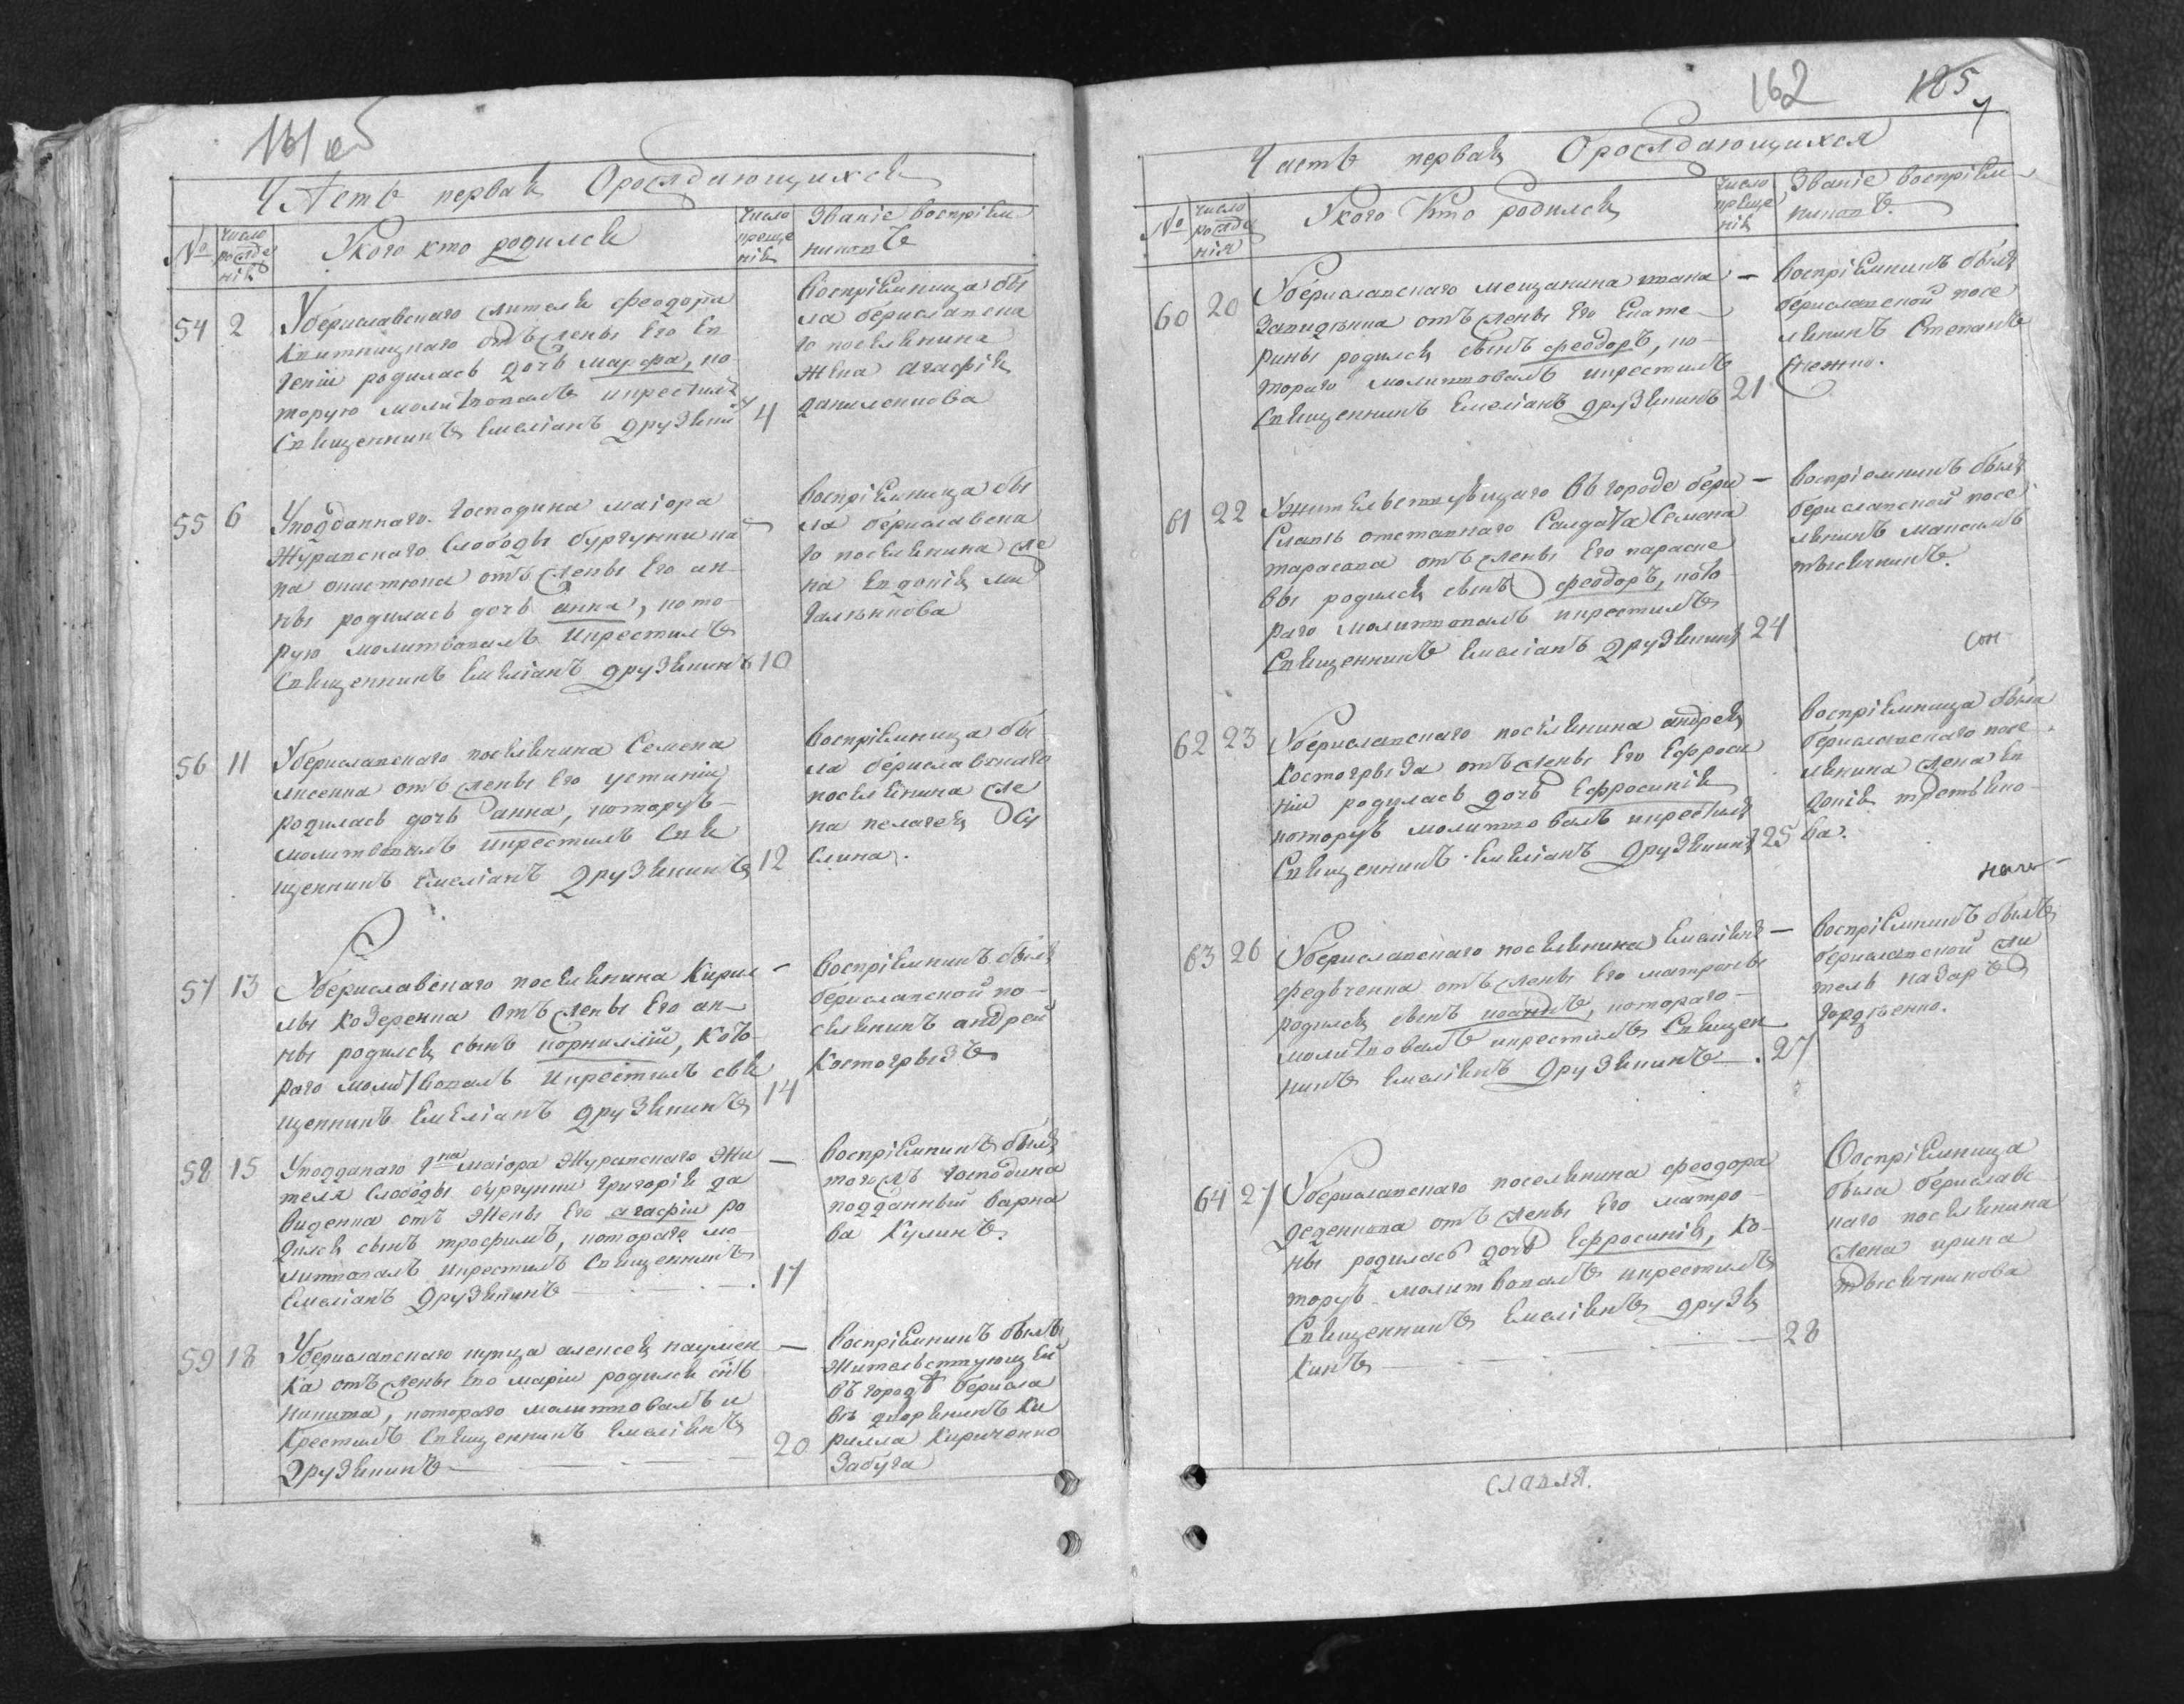 161 об
Часть первая О рождающихся
№ число рожденія У кого кто родился число крещенія Званіе воспріемниковъ
54 2 У бериславскаго жителя феодора
отъ жены Его Ев
геніи родилась дочь марфа, ко
торую молитвовалъ и крестилъ
Священникъ Емеліанъ друзякин 4
воспріемница бы
ла бериславска
го поселянина
жена агафія
даниленкова
55 6 У подданнаго господина маіора
Журавскаго слободы бургунки
отъ жены Его ан
ны родилась дочь анна, кото
рую молитвовалъ и крестилъ
Священникъ Емеліанъ друзякинъ 10
воспріемница бы
ла бериславска
го поселянина же
на Евдокія
56 11 У бериславскаго поселянина Семена
лисенка отъ жены Его устиніи
родилась дочь анна, которую
молитвовалъ и крестилъ Свя
щенникъ Емеліанъ друзякинъ 12
воспріемница бы
ла бериславскаго
поселянина же
на пелагея
57 13 У бериславскаго поселянина Кирил
лы козеренка отъ жены Его ан
ны родился сынъ корнилій, кото
раго молитвовалъ и крестилъ свя
щенникъ Емеліанъ друзякинъ 14
воспріемникъ былъ
бериславской по
селянинъ андрей
Костогрызъ
58 15 У подданаго г-на маіора Журавскаго жи
теля слободы бургунки григорія да
виденка отъ жены Его агафіи ро
дился сынъ трофимъ, котораго мо
литвовалъ и крестилъ Священникъ
Емеліанъ друзякинъ 17
воспріемникъ былъ
того жъ господина
подданный варка
ва Куликъ.
59 18 У бериславскаго купца алексея наумен
ка отъ жены Его маріи родился снъ
никита, котораго молитвовалъ и
Крестилъ Священникъ Емеліянъ
Друзякинъ 20
воспріемникъ былъ
Жительствующій
въ городѣ берисла
вѣ дворянинъ Ки
рилла Кириченко
Забуга
162 185
Часть первая О рождающихся
№ число рожденія У кого Кто родился число крещенія Званіе воспріемниковъ.
60 20 У бериславскаго мещанина ивана
отъ жены Его Екате
рины родился сынъ феодоръ, ко
тораго молитвовалъ и крестилъ
Священникъ Емеліанъ друзякинъ 21
воспріемникъ былъ
бериславской посе
лянинъ Степанъ
61 22 У жительствующаго въ городе бери
славлѣ отставнаго Салдата Семена
тарасова отъ жены Его параске
вы родился сынъ феодоръ, кото
раго молитвовалъ и крестилъ
Священникъ Емеліанъ друзякинъ 24
воспріемникъ былъ
бериславской посе
лянинъ максимъ
тысячникъ.
62 23 У бериславскаго поселянина андрея
костогрыза отъ жены Его Ефроси
ніи родилась дочь Ефросинія
которую молитвовалъ и крестилъ
Священникъ Емеліанъ друзякинъ 25
воспріемница была
бериславскаго посе
лянина жена Ев
докія третьяко
ва.
63 26 У бериславскаго поселянина Емеліяна
федченка отъ жены Его матроны
родился сынъ иоаннъ, котораго
молитвовалъ и крестилъ Священ
никъ Емеліянъ Друзякинъ 27
воспріемникъ былъ
бериславской жи
тель назаръ
гордѣенко.
64 27 У бериславскаго поселянина феодора
деденкова отъ жены Его матро
ны родилась дочь Ефросинія, ко
торую молитвовалъ и крестилъ
Священникъ Емеліянъ друзя
кинъ 28
Воспріемница
была бериславс
каго поселянина
жена ирина
тысячникова